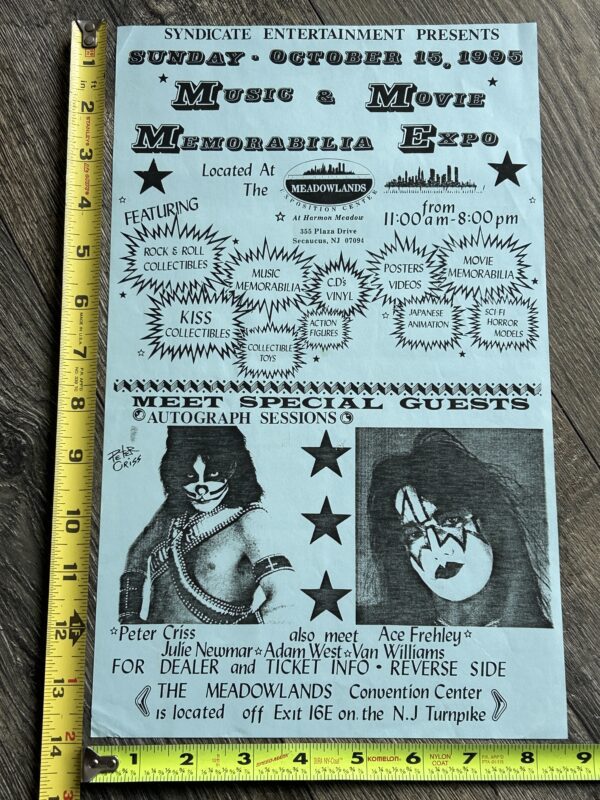 SYNDICATE ENTERTAINMENT PRESENTS
SUNDAY · OCTOBER 15, 1995
MUSIC & MOVIE
MEMORABILIA EXPO
Located At
The
MEADOWLANDS
XPOSITION CENTER
At Harmon Meadow
355 Plaza Drive
Secaucus, NJ 07094
from
11:00am-8:00pm
FEATURING
ROCK & ROLL
COLLECTIBLES
MUSIC
MEMORABILIA
C.D's
VINYL
POSTERS
VIDEOS
MOVIE
MEMORABILIA
KISS
COLLECTIBLES
COLLECTIBLE
TOYS
ACTION
FIGURES
JAPANESE
ANIMATION
SCI FI
HORROR
MODELS
MEET SPECIAL GUESTS
AUTOGRAPH SESSIONS
Peter
Criss
Peter Criss also meet Ace Frehley
Julie Newmar Adam West Van Williams
FOR DEALER and TICKET INFO • REVERSE SIDE
THE MEADOWLANDS Convention Center
is located off Exit 16E on the N.J Turnpike
1
2
3
4
5
6
7
8
9
10
11
12
13
14
STANLEY
MADE IN U.S.A.
1 2 3 4 5 6 7 8 9
KOMELON
NYLON
COAT